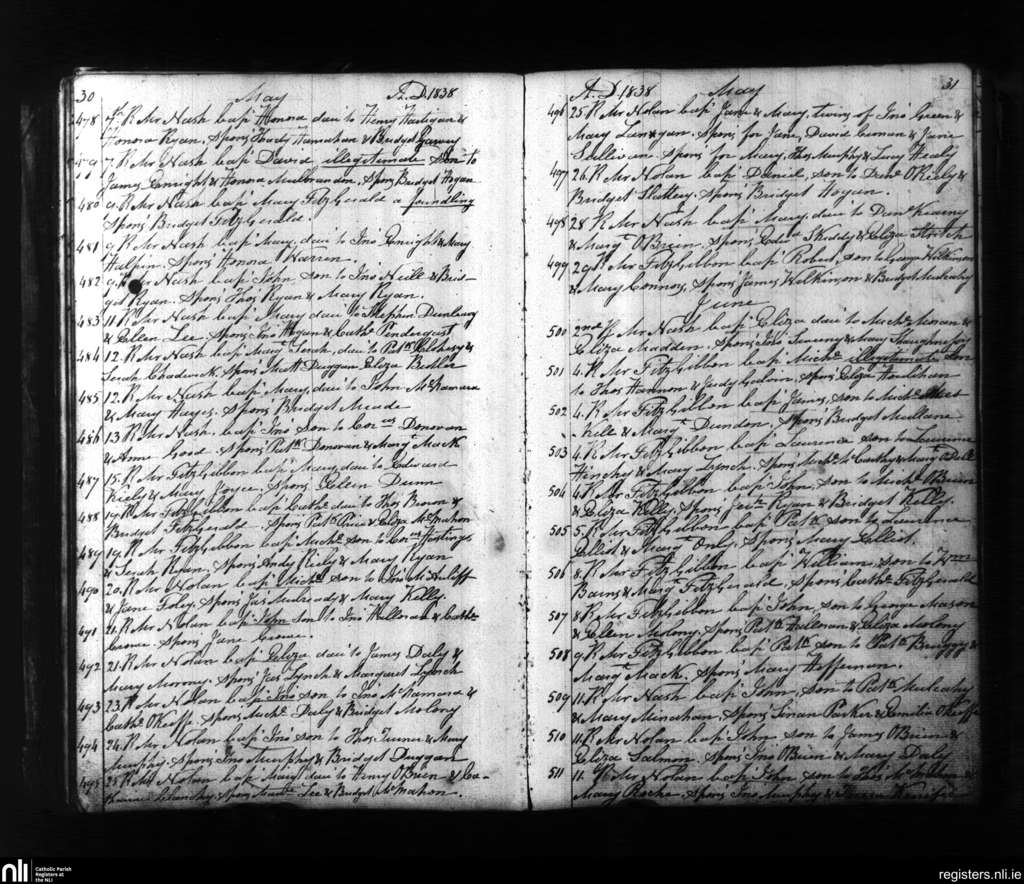 30 May A.D. 1838
478 7. R Mr Nash bap Honora dau to Henry Hartigan &
Honora Ryan. Spons Thady Hanrahan & Bridget Garvey
479 7. R Mr Nash bap David, illegitimate son to
James Enright & Honora Mulbrandon, Spons Bridget Hogan
480 R Mr Nash bap Mary FitzGerald a foundling
Spons Bridget FitzGerald.
481 9 R Mr Nash bap Mary dau to Jno Enright & Mary
Halpin. Spons Honora Warren.
482 9. R Mr Nash bap John son to Jno Neill & Brid-
get Ryan. Spons Thos Ryan & Mary Ryan.
483 11 R Mr Nash bap Mary dau to Stephen
& Ellen Lee. Spons Jno Hogan & Cathe Pendergast
484 12. R Mr Nash bap Mary Sarah, dau to Patk &
Sarah Chadwick, Spons Matt Duggan Eliza
485 12. R Mr Nash bap Mary dau to John McNamara
& Mary Hayes. Spons Bridget Meade
486 13 R Mr Nash bap Jno son to Cors Donovan
& Anne Good. Spons Patk Donovan & Margt Mack
487 15. R Mr FitzGibbon bap Mary dau to Edward
Kiely & Mary Joyce. Spons Ellen Dunn
488 19 R Mr FitzGibbon bap Cathe dau to Thos &
Bridget FitzGerald. Spons Patk & Eliza McMahon
489 19. R Mr FitzGibbon bap Michl son to Cors Hastings
& Sarah Ryan, Spons Andy Kiely & Mary Ryan
490 20. R Mr Nolan bap Michl son to Jno McAuliff
& Jane Foley. Spons Jas Mulready & Mary Kelly.
491 20. R Mr Nolan bap John son to Jno Halloran & Cathe
Crowe. Spons Jane Crowe.
492 21. R Mr Nolan bap Eliza dau to James Daly &
Mary Moroney. Spons Jas Lynch & Margaret Lynch
493 23. R Mr Nolan bap Jno son to Jno McNamara &
Cathe OKeeffe. Spons Michl Daly & Bridget Molony
494 24. R Mr Nolan bap Jno son to Thos Turner & Mary
Murphy. Spons Jno Murphy & Bridget Duggan
495 25 R Mr Nolan bap Mary dau to Henry OBrien & Ca-
Spons Lee & Bridget McMahon.
A.D. 1838 May 31
496 25 R Mr Nolan bap Jane & Mary, twins of Jno Green &
Mary Linegan. Spons for Jane, David & Jane
Sullivan. Spons for Mary, Thos Murphy & Lucy Healy
497 26. R Mr Nolan bap Daniel, son to Denis OKiely &
Bridget Slattery. Spons Bridget Hogan.
498 28 R Mr Nash bap Mary, dau to Danl Kearny
& Margt OBrien. Spons Edwd Skiddy & Eliza
499 29 R Mr FitzGibbon bap Robert, son to George Wilkinson
& Mary Connors, Spons James Wilkinson & Bridget Mulcahy
June
500 2nd R Mr Nash bap Eliza dau to Michl Moran &
Eliza Madden. Spons Jno & Mary Shaughnessy
501 4. R Mr FitzGibbon bap Michl illegitimate son
to Thos Hannon & Judy Spons Eliza Houlihan
502 4. R Mr FitzGibbon bap James, son to Michl
& Margt Dundon. Spons Bridget Mullane
503 4. R Mr FitzGibbon bap Laurence son to Laurence
Hinchy & Mary Lynch. Spons Michl McCarthy & Margt ODell
504 4 R Mr FitzGibbon bap John, son to Michl OBrien
& Eliza Kelly, Spons Ryan & Bridget Kelly
505 5. R Mr FitzGibbon bap Patk son to Laurence
& Margt Spons Mary
506 8. R Mr FitzGibbon bap William, son to Wm
Barns & Margt FitzGerald, Spons Cathe FitzGerald
507 8 R Mr FitzGibbon bap John, son to George Mason
& Ellen Molony. Spons Patk & Eliza Molony
508 9 R Mr FitzGibbon bap Patk son to Patk &
Margt Mack. Spons Mary Heffernan.
509 11. R Mr Nash bap John, son to Patk Mulcahy
& Mary Minahan. Spons Parker & OKeeffe
510 11. R Mr Nolan bap John son to James OBrien &
Eliza Salmon. Spons Jno OBrien & Mary Daly
511 11. R Mr Nolan bap John son to Thos &
Mary Roche. Spons Jno Murphy &
nli
Catholic Parish
Registers at
the NLI
registers.nli.ie